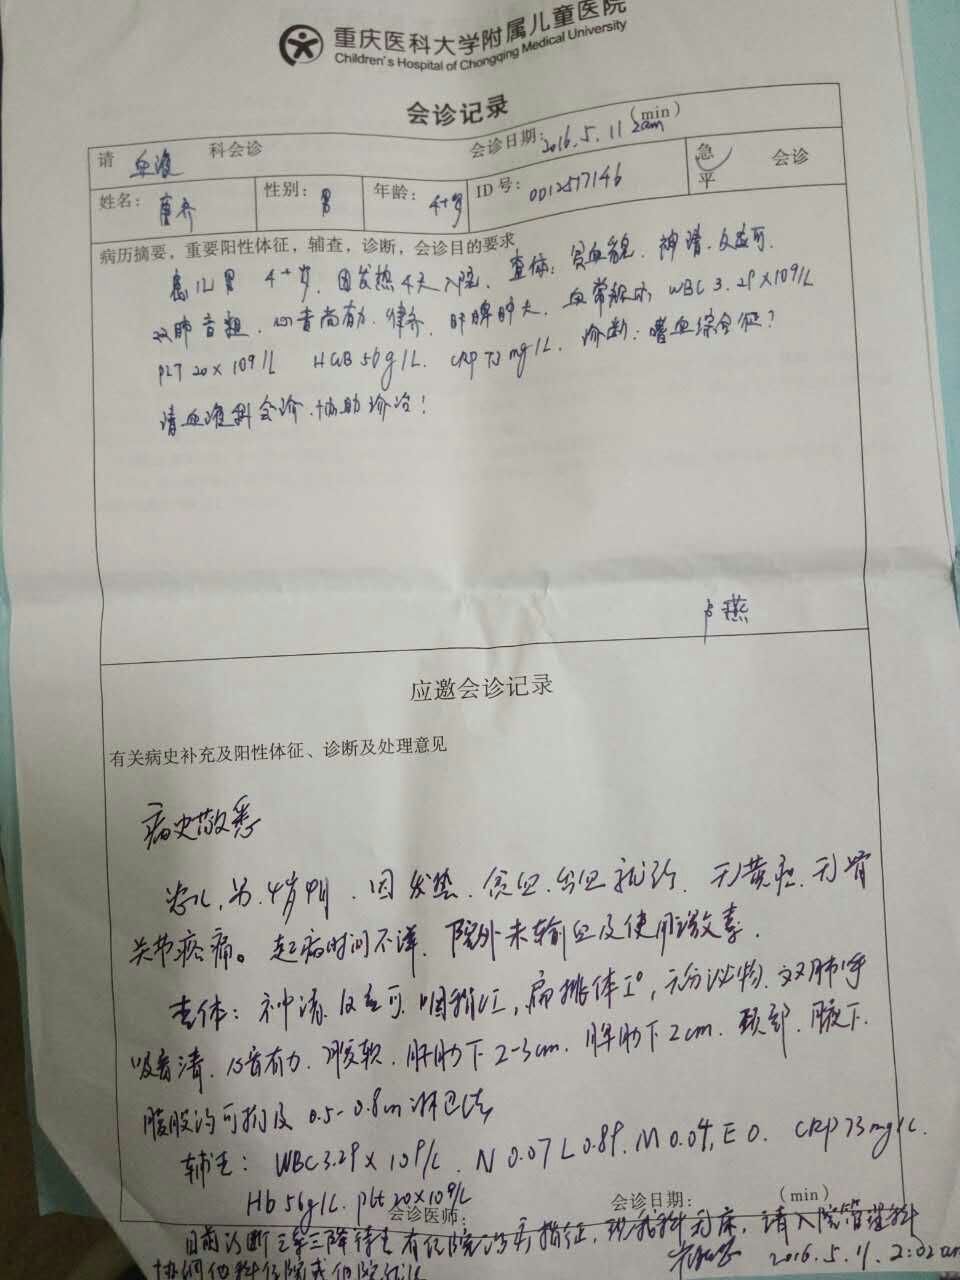 重庆医科大学附属儿童医院
Children's Hospital of Chongqing Medical University
会诊记录
请 血液 科会诊 会诊日期: 2016.5.11 2am (min)
姓名: 性别: 男 年龄: 4+岁 ID号: 0012517146 急 平 会诊
病历摘要,重要阳性体征,辅查,诊断,会诊目的要求
患儿男 4+岁,因发热4天入院。查体:贫血貌,神清,反应可.
双肺音粗,心音尚有力,律齐,肝脾肿大,血常规示 WBC 3.29×109/L
PLT 20×109/L HGB 56g/L. CRP 73mg/L. 诊断:噬血综合征?
请血液科会诊,协助诊治!
卢燕
应邀会诊记录
有关病史补充及阳性体征、诊断及处理意见
病史敬悉
患儿,男,4岁,因发热,贫血,出血就诊,无黄疸,无骨
关节疼痛。起病时间不详,院外未输血及使用激素.
查体:神清,反应可,咽稍红,扁桃体I°,无分泌物,双肺呼
吸音清,心音有力,腹软,肝肋下2-3cm,脾肋下2cm.颈部,腋下,
腹股沟可扪及0.5-0.8cm淋巴结
辅查: WBC 3.29×109/L. N 0.07 L 0.89. M 0.04, E 0. CRP 73mg/L.
Hb 56g/L. plt 20×109/L
会诊医师: 会诊日期: (min)
目前诊断三系三降待查 有住院治疗指征,现我科无床,请入院管理科
2016.5.11. 2:02am
协调他科住院或他院就诊